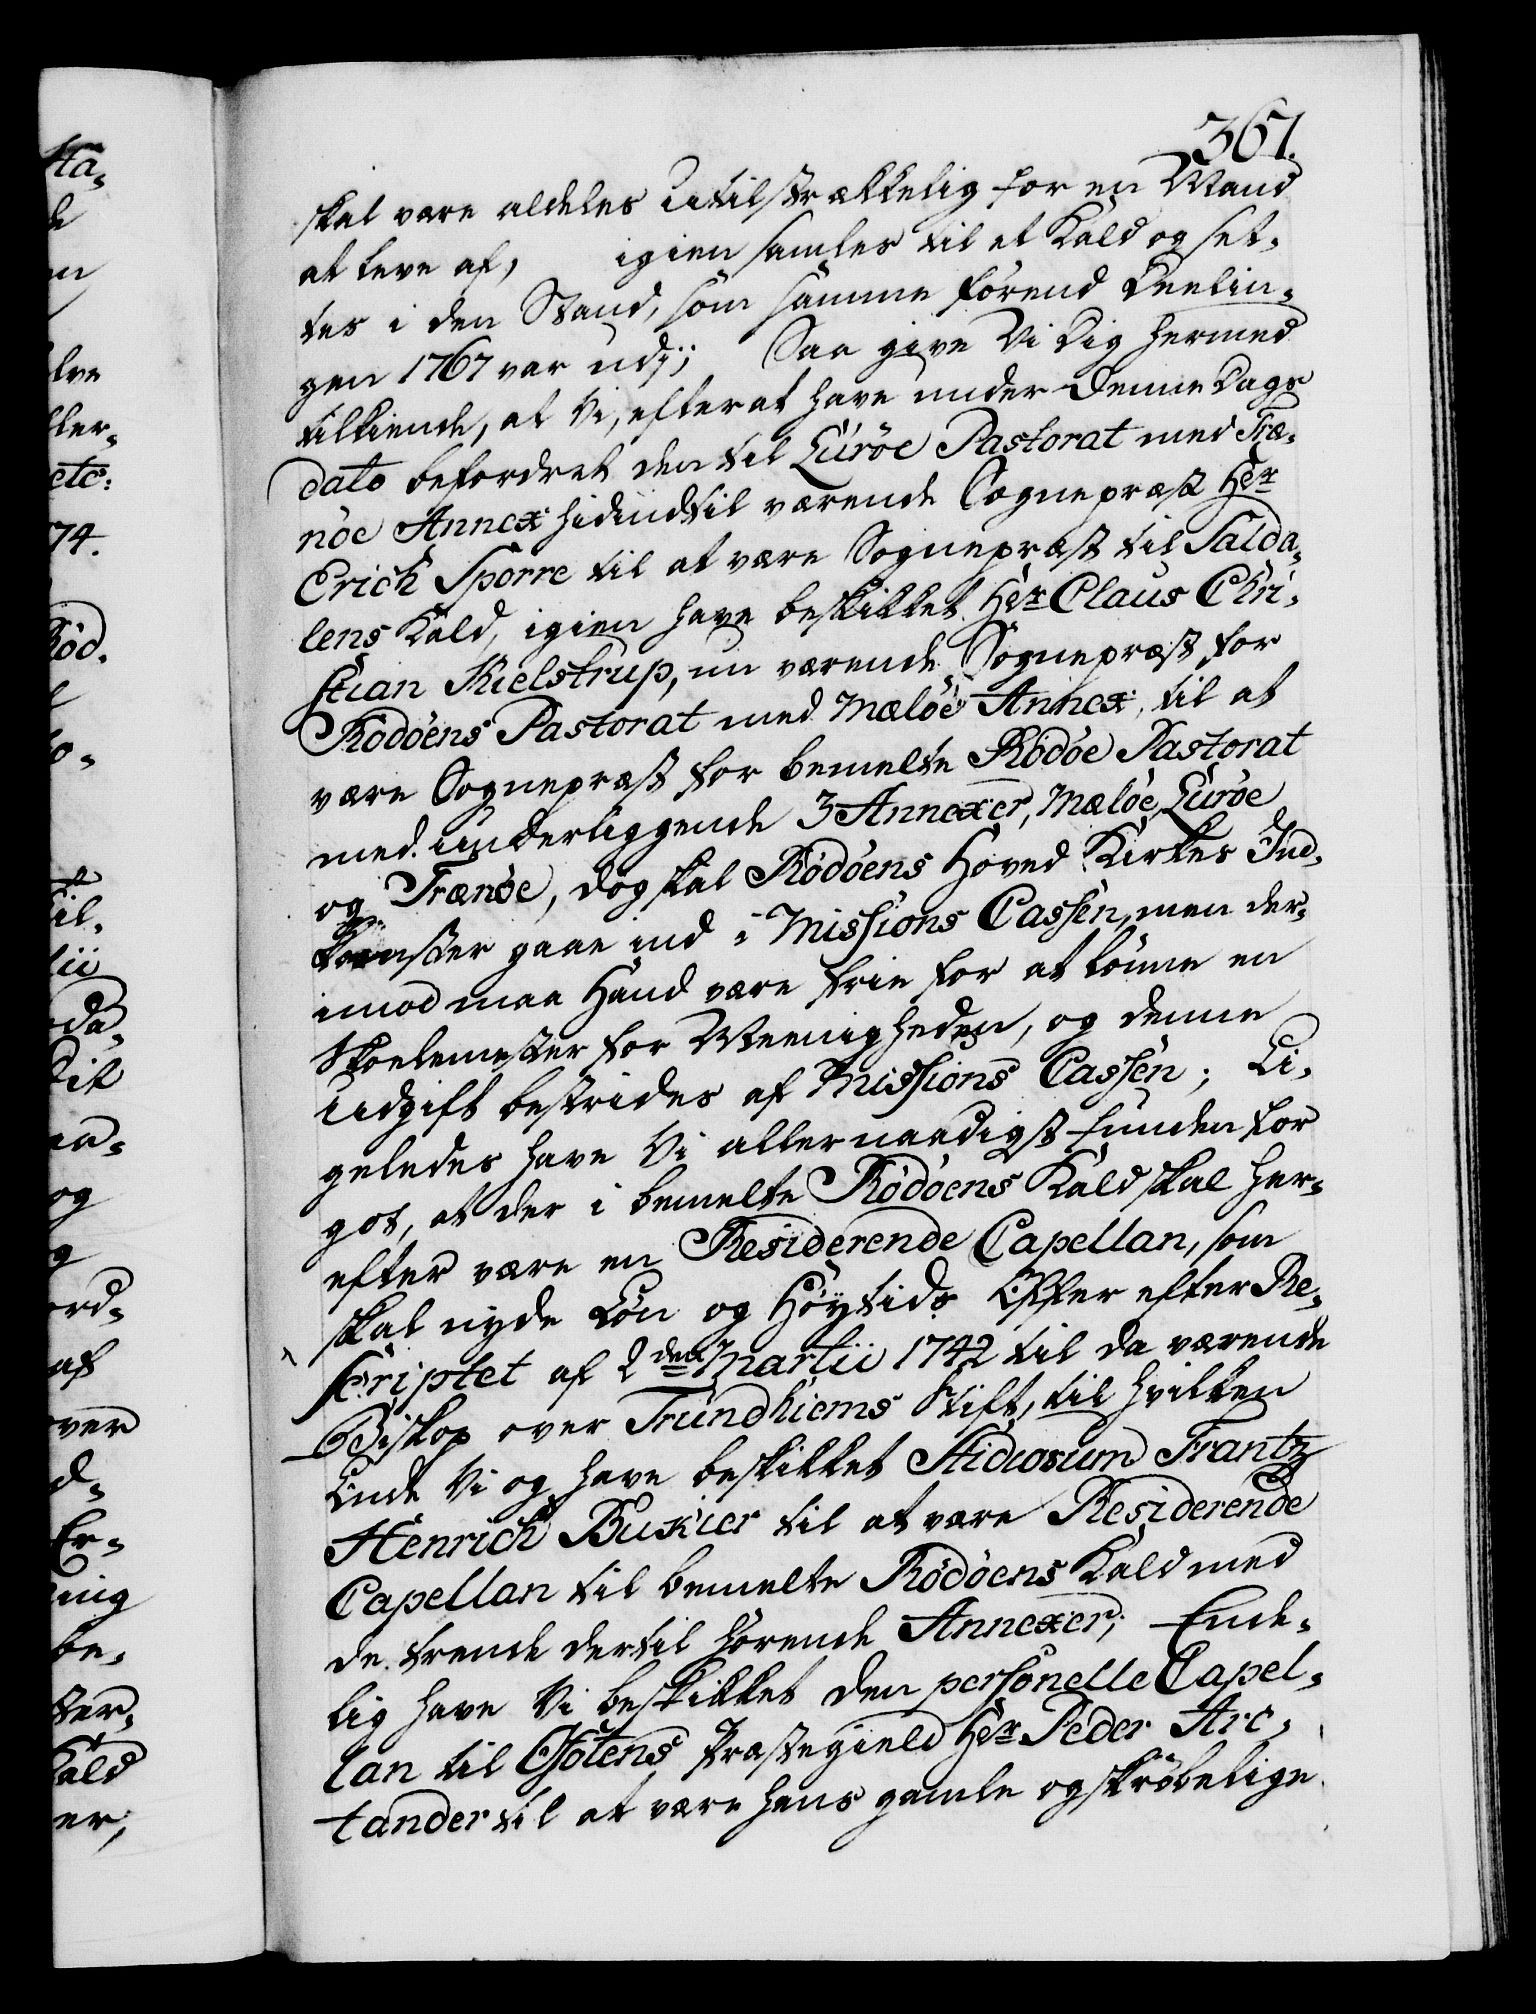 367.
skal være aldeles Utilstrækkelig for en Mand
at leve af, igien samles til et Kald og set-
tes i den Stand, som samme förend Deelin-
gen 1767 var udj; Saa give Vi Dig hermed
tilkiende, at Vi, efterat have under Denne Dags
dato befordret den til Luröe Pastorat med Træ-
nöe Annex hidindtil værende Sognepræst Hr
Erich Sporre til at være Sognepræst til Salda-
lens Kald, igien have beskikket Hr Claus Chri-
stian Kielstrup, nu værende Sognepræst for
Rödöens Pastorat med Mælöe Annex, til at
være Sognepræst for bemelte Rödöe Pastorat
med underliggende 3 Annexer, Mælöe, Luröe
og Trænöe, dog skal Rödöens Hoved Kirkes Ind-
komster gaae ind i Missions Cassen, men der-
imod maa Hand være frie for at lönne en
Skoelemester for Meenigheden, og denne
Udgift bestrides af Missions Cassen; Li-
geledes have Vi allernaadigst funden for
got, at der i bemelte Rödöens Kald skal her-
efter være en Residerende Capellan, som
skal nyde Lön og Höytids Offer efter Re-
scriptet af 2den Martii 1742 til da værende
Biskop over Trundhiems Stift, til hvilken
Ende Vi og have beskikket Studiosum Frantz
Henrich Bukier til at være Residerende
Capellan til bemelte Rödöens Kald med
de trende dertil hörende Annexer; Ende-
lig have Vi beskikket den personelle Capel-
lan til Ofotens Præstegield Hr Peder Arc-
tander til at være hans gamle og skröbelige